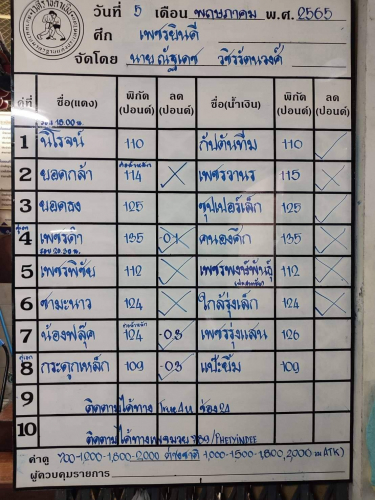 วันที่ 5 เดือน พฤษภาคม พ.ศ. 2565
ศึก เพชรยินดี
จัดโดย นายณัฐเดช วชิรรัตนวงศ์
คู่ที่ ชื่อ(แดง) พิกัด (ปอนด์) ลด (ปอนด์) ชื่อ(น้ำเงิน) พิกัด (ปอนด์) ลด (ปอนด์)
1 นิโรจน์ 110 กัปตันทีม 110
2 ยอดกล้า 114 เพชรวานร 115
3 ยอดธง 125 ซุปเปอร์เล็ก 125
คู่เอก
4 เพชรดำ 135 -0.1 คนองศึก 135
5 เพชรพิชัย 112 เพชรพงษ์พันธุ์ 112
6 ชามะนาว 124 ใกล้รุ่งเล็ก 124
7 น้องฟลุ๊ค 124 -0.3 เพชรรุ่งแสน 126
คู่เอก
8 กระดูกเหล็ก 109 -0.3 แป๊ะยิ้ม 109
9 ติดตามได้ทาง True4U ช่อง 24
10 ติดตามได้ทางเพชรมวย /PHETYINDEE
ค่าดู 700-1,000-1,500-2,000 ต่างชาติ 1,000-1,500-1,800, 2,000 ATK)
ผู้ควบคุมรายการ